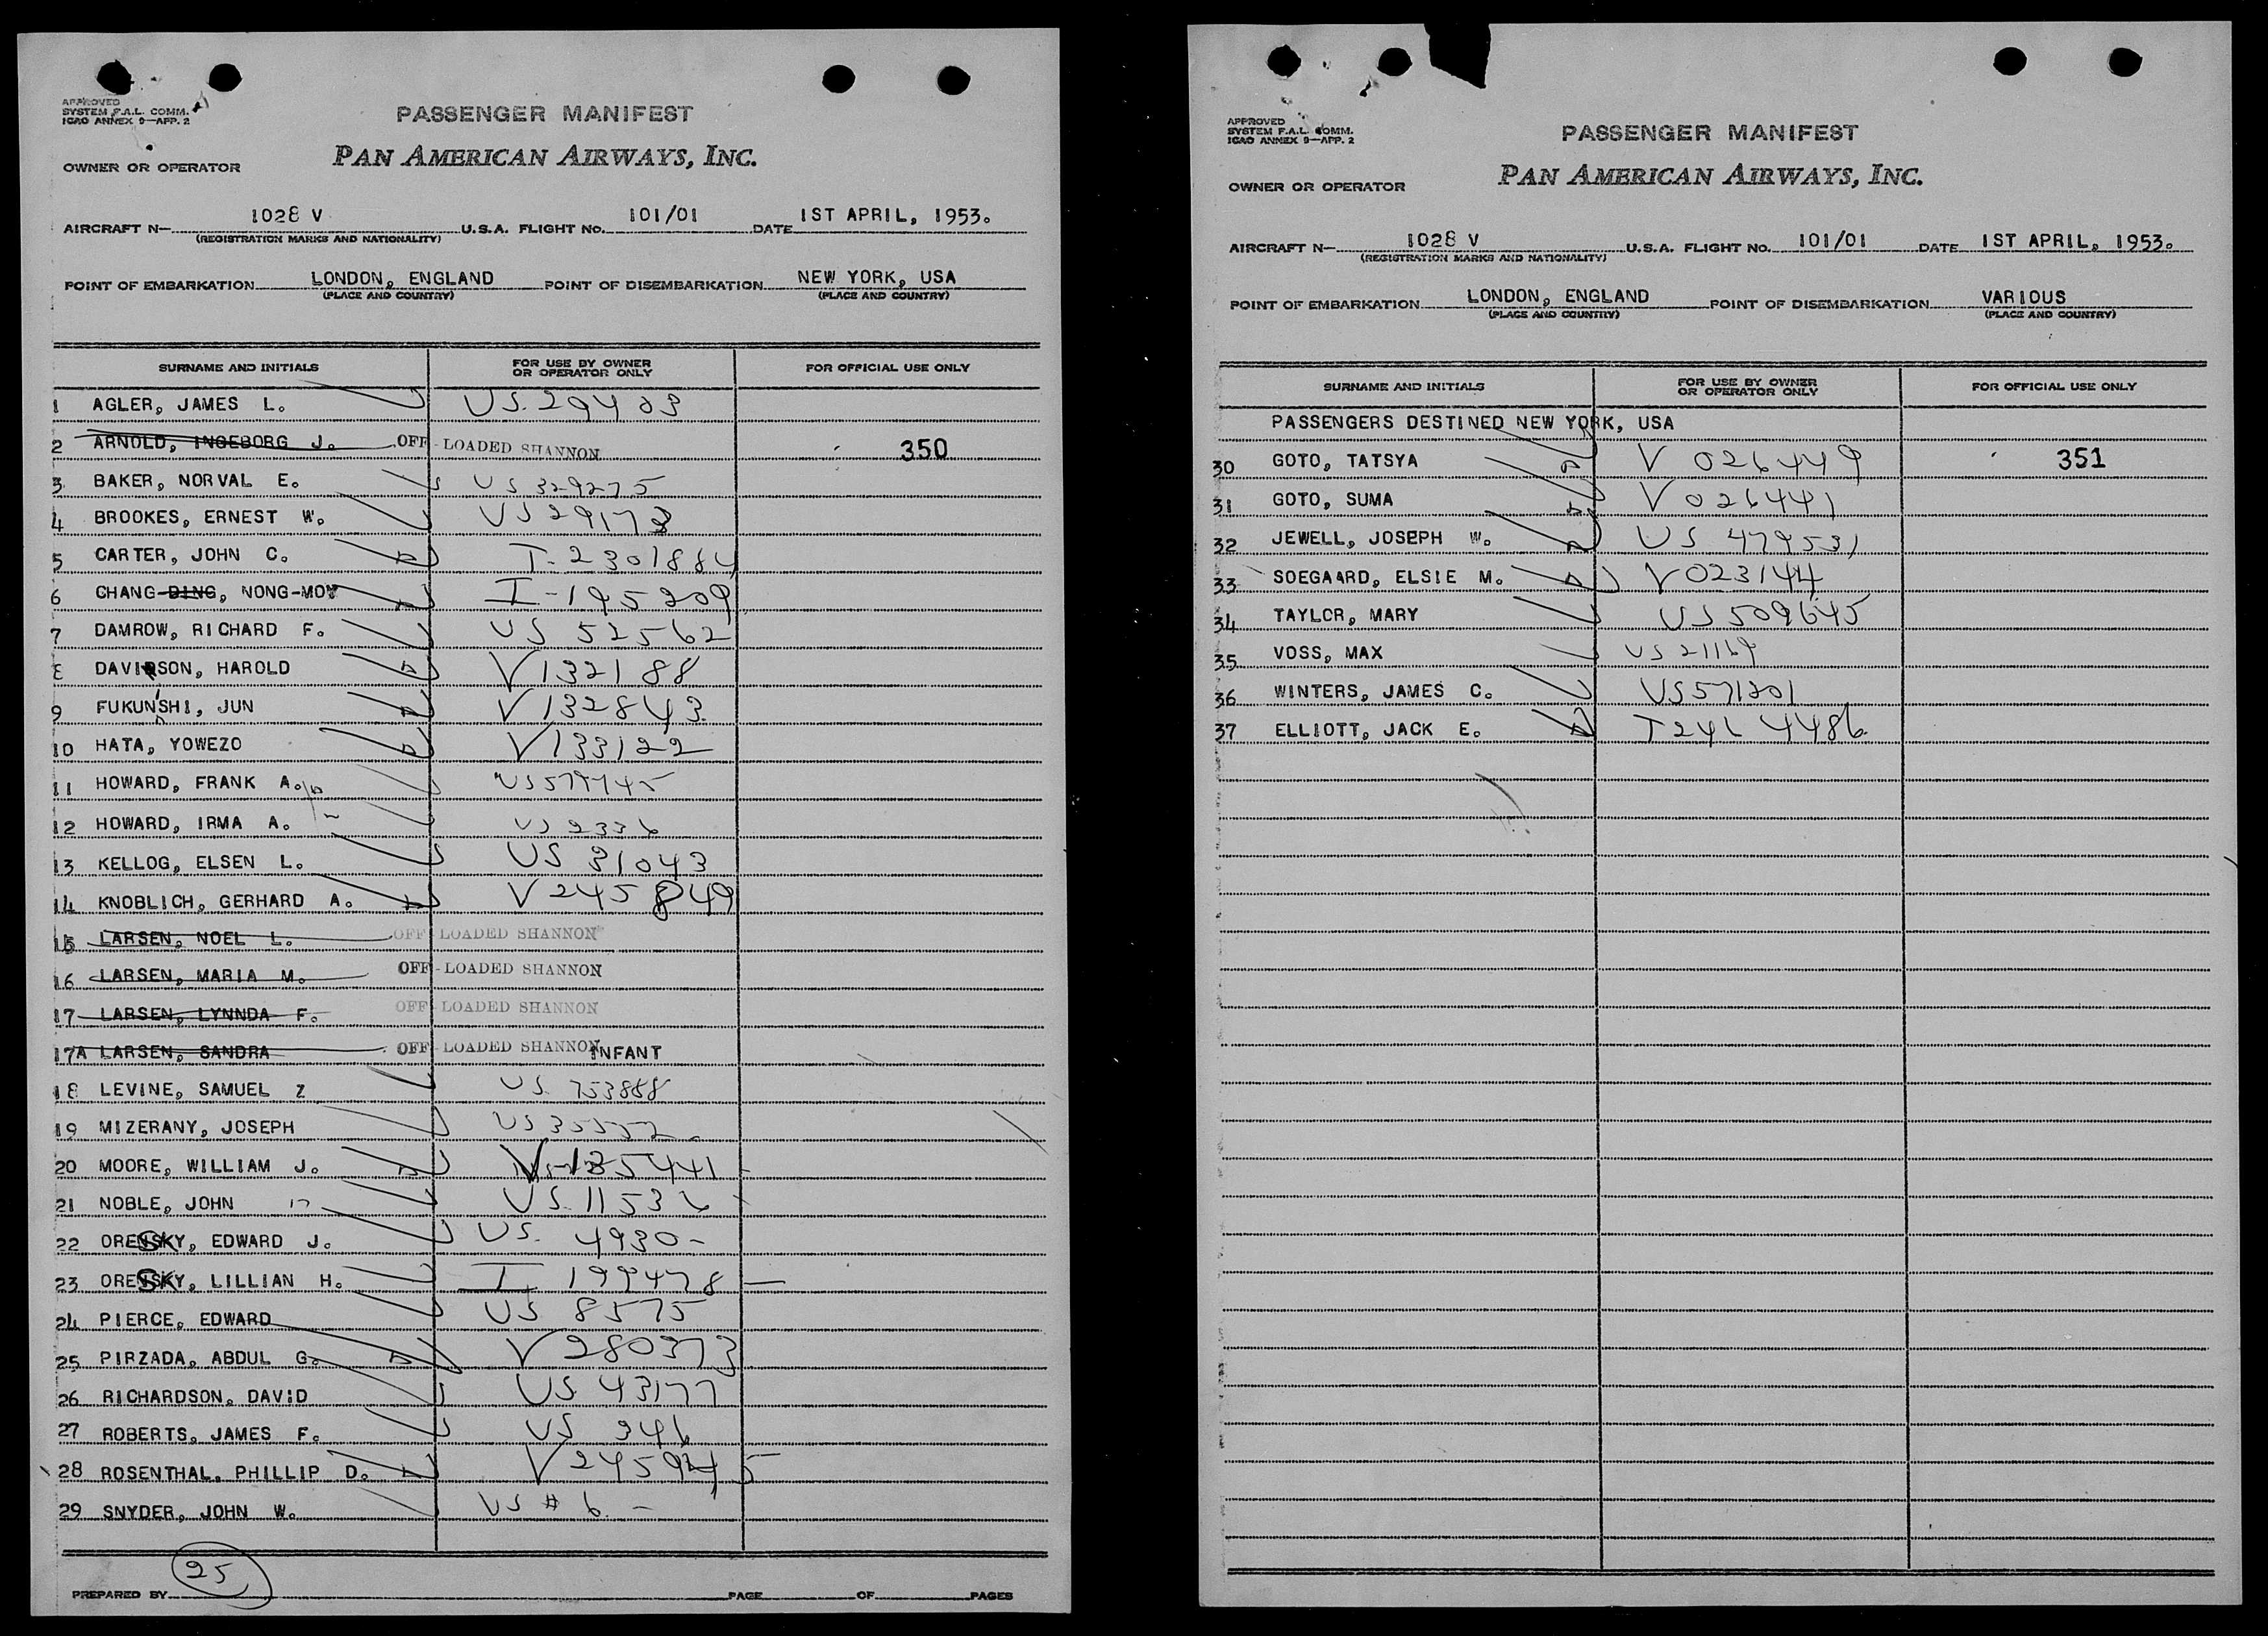 APPROVED
SYSTEM F.A.L. COMM.
ICAO ANNEX 9—APP. 2
PASSENGER MANIFEST
OWNER OR OPERATOR PAN AMERICAN AIRWAYS, INC.
AIRCRAFT N— 1028 V U.S.A. FLIGHT No. 101/01 DATE 1ST APRIL, 1953.
(REGISTRATION MARKS AND NATIONALITY)
POINT OF EMBARKATION LONDON, ENGLAND POINT OF DISEMBARKATION NEW YORK, USA
(PLACE AND COUNTRY) (PLACE AND COUNTRY)
SURNAME AND INITIALS FOR USE BY OWNER OR OPERATOR ONLY FOR OFFICIAL USE ONLY
1 AGLER, JAMES L. US. 29403
2 ARNOLD, INGEBORG J. OFF-LOADED SHANNON 350
3 BAKER, NORVAL E. US 329275
4 BROOKES, ERNEST W. US 29173
5 CARTER, JOHN C. T-2301884
6 CHANG-DING, NONG-MOY I-195209
7 DAMROW, RICHARD F. US 52562
8 DAVIDSON, HAROLD V132188
9 FUKUNSHI, JUN V132843
10 HATA, YOWEZO V133122
11 HOWARD, FRANK A. US
12 HOWARD, IRMA A. US 2336
13 KELLOG, ELSEN L. US 31043
14 KNOBLICH, GERHARD A. V245849
15 LARSEN, NOEL L. OFF-LOADED SHANNON
16 LARSEN, MARIA M. OFF-LOADED SHANNON
17 LARSEN, LYNNDA F. OFF-LOADED SHANNON
17A LARSEN, SANDRA OFF-LOADED SHANNON INFANT
18 LEVINE, SAMUEL Z US. 753888
19 MIZERANY, JOSEPH US 35552
20 MOORE, WILLIAM J. V-135441
21 NOBLE, JOHN US. 11536
22 ORENSKY, EDWARD J. US. 4930-
23 ORENSKY, LILLIAN H. I 199478
24 PIERCE, EDWARD US 8575
25 PIRZADA, ABDUL G. V280373
26 RICHARDSON, DAVID US 43177
27 ROBERTS, JAMES F. US 346
28 ROSENTHAL, PHILLIP D. V245945
29 SNYDER, JOHN W. US # 6 -
25
PREPARED BY PAGE OF PAGES
APPROVED
SYSTEM F.A.L. COMM.
ICAO ANNEX 9—APP. 2
PASSENGER MANIFEST
OWNER OR OPERATOR PAN AMERICAN AIRWAYS, INC.
AIRCRAFT N— 1028 V U.S.A. FLIGHT No. 101/01 DATE 1ST APRIL, 1953.
(REGISTRATION MARKS AND NATIONALITY)
POINT OF EMBARKATION LONDON, ENGLAND POINT OF DISEMBARKATION VARIOUS
(PLACE AND COUNTRY) (PLACE AND COUNTRY)
SURNAME AND INITIALS FOR USE BY OWNER OR OPERATOR ONLY FOR OFFICIAL USE ONLY
PASSENGERS DESTINED NEW YORK, USA
30 GOTO, TATSYA V 026449 351
31 GOTO, SUMA V 026441
32 JEWELL, JOSEPH W. US 479531
33 SOEGAARD, ELSIE M. V023144
34 TAYLOR, MARY US 509645
35 VOSS, MAX US 21169
36 WINTERS, JAMES C. US 571201
37 ELLIOTT, JACK E. T246 4486